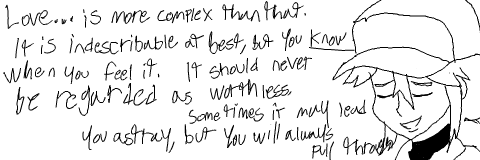 Love... is more complex than that.
It is indescribable at best, but you know
when you feel it. It should never
be regarded as worthless.
Sometimes it may lead
you astray, but you will always
pull through